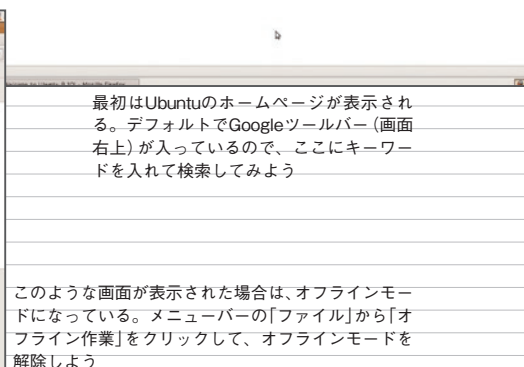 最初はUbuntuのホームページが表示され
る。デフォルトでGoogleツールバー（画面
右上）が入っているので、ここにキーワー
ドを入れて検索してみよう
このような画面が表示された場合は、オフラインモー
ドになっている。メニューバーの「ファイル」から「オ
フライン作業」をクリックして、オフラインモードを
解除しよう